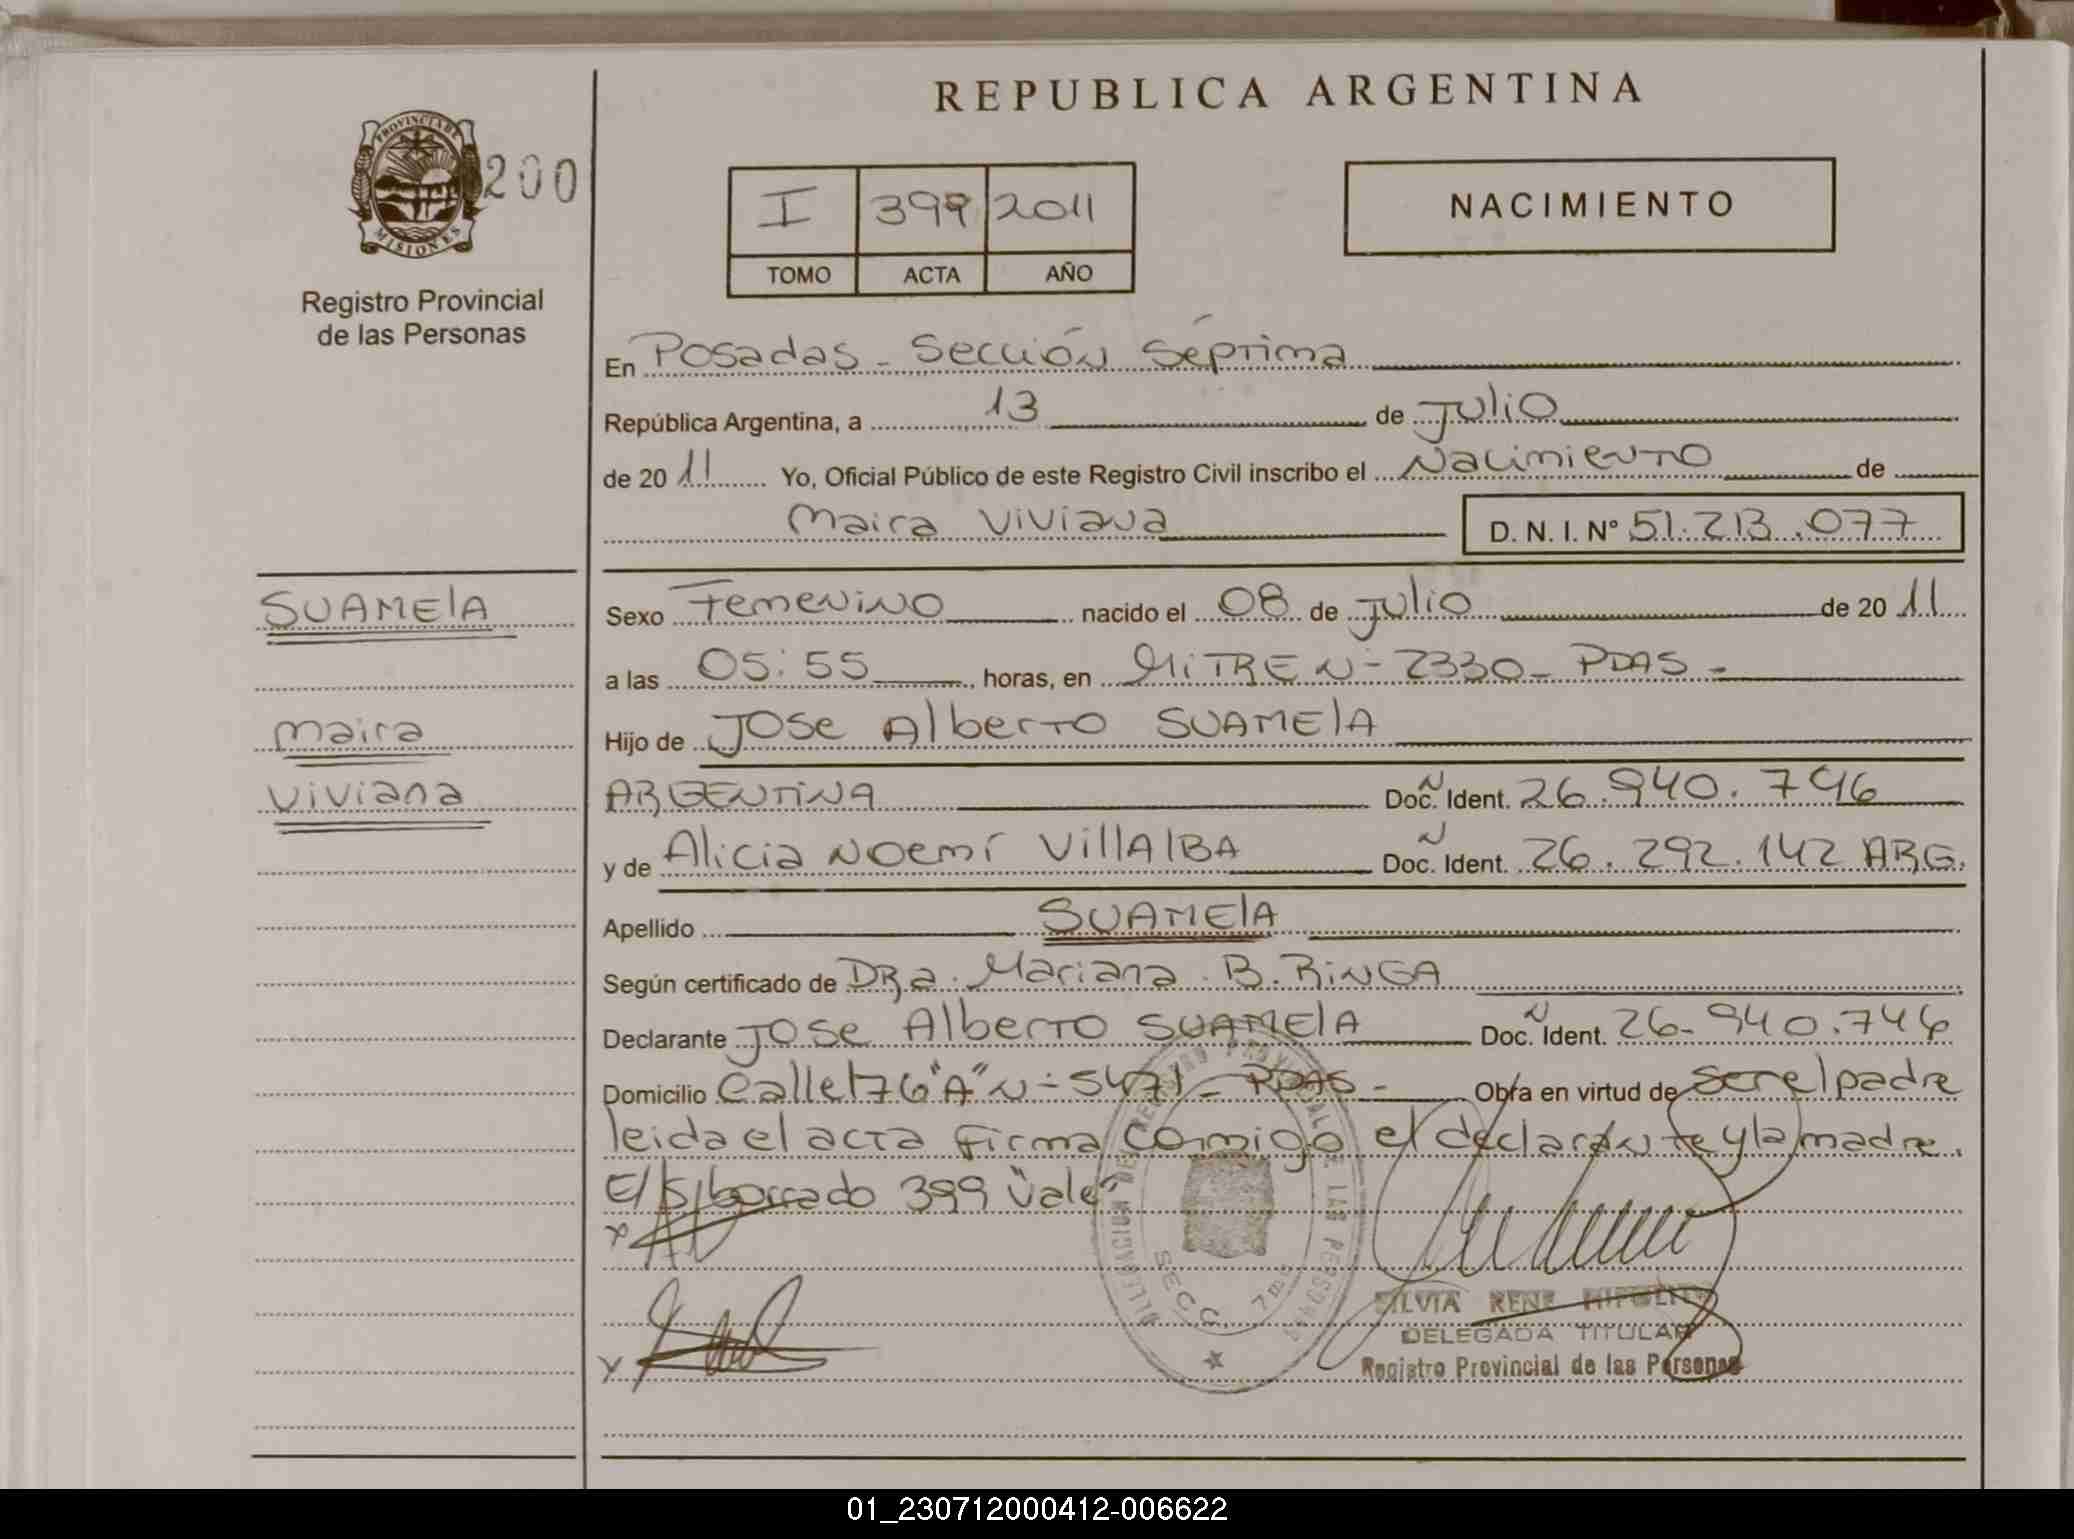 REPUBLICA ARGENTINA
PROVINCIA DE
MISIONES
200
Registro Provincial
de las Personas
I 399 2011
TOMO ACTA AÑO
NACIMIENTO
En Posadas - Sección Séptima
República Argentina, a 13 de Julio
de 2011 Yo, Oficial Público de este Registro Civil inscribo el Nacimiento de
Maira Viviana D. N. I. N° 51.213.077
SUAMElA
Maira
Viviana
Sexo Femenino nacido el 08 de Julio de 2011
a las 05:55 horas, en MiTRE N- 2330- PDAS -
Hijo de JOSe AlberTO SUAMElA
ARGENTINA Doc. Ident. N 26.940.746
y de Alicia NOemí VillAlBA Doc. Ident. N 26.292.142 ARG.
Apellido SUAMElA
Según certificado de DRa. Mariana B. RiNGA
Declarante JOSe AlberTO SUAMElA Doc. Ident. N 26-940.746
Domicilio Calle 176 "A" N- 5471 - PDAS - Obra en virtud de Ser el padre
leida el acta firma conmigo el declarante y la madre.
E/S/borrado 399 "Vale"
DELEGACION DEL REGISTRO PROVINCIAL DE LAS PERSONAS
SECC. 7ma
SILVIA RENE HIPOLITO
DELEGADA TITULAR
Registro Provincial de las Personas
01_230712000412-006622